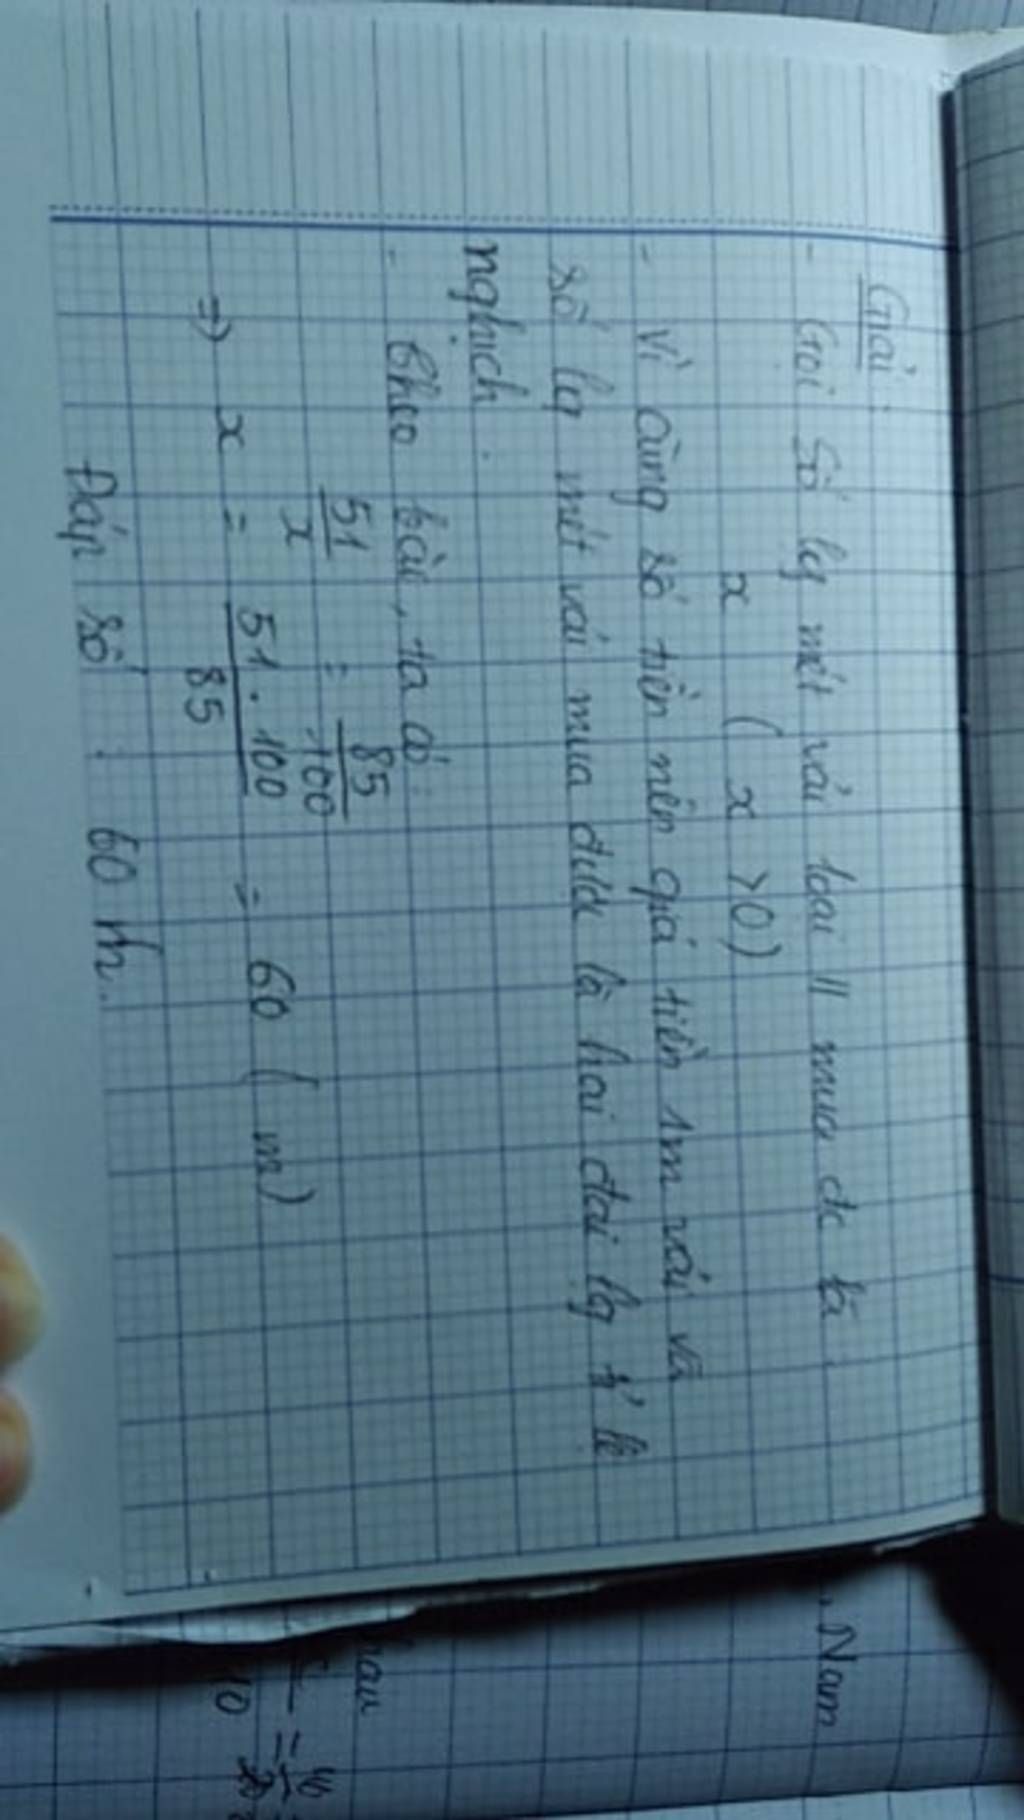 Giải:
- Gọi số lg mét vải loại II mua đc là
x ( x > 0)
- Vì cùng số tiền nên giá tiền 1m vải và
số lg mét vải mua được là hai đại lg tỉ lệ
nghịch.
- Theo bài, ta có:
51/x = 85/100
=> x = 51.100/85 = 60 ( m)
Đáp số : 60 m.
, Nam
10